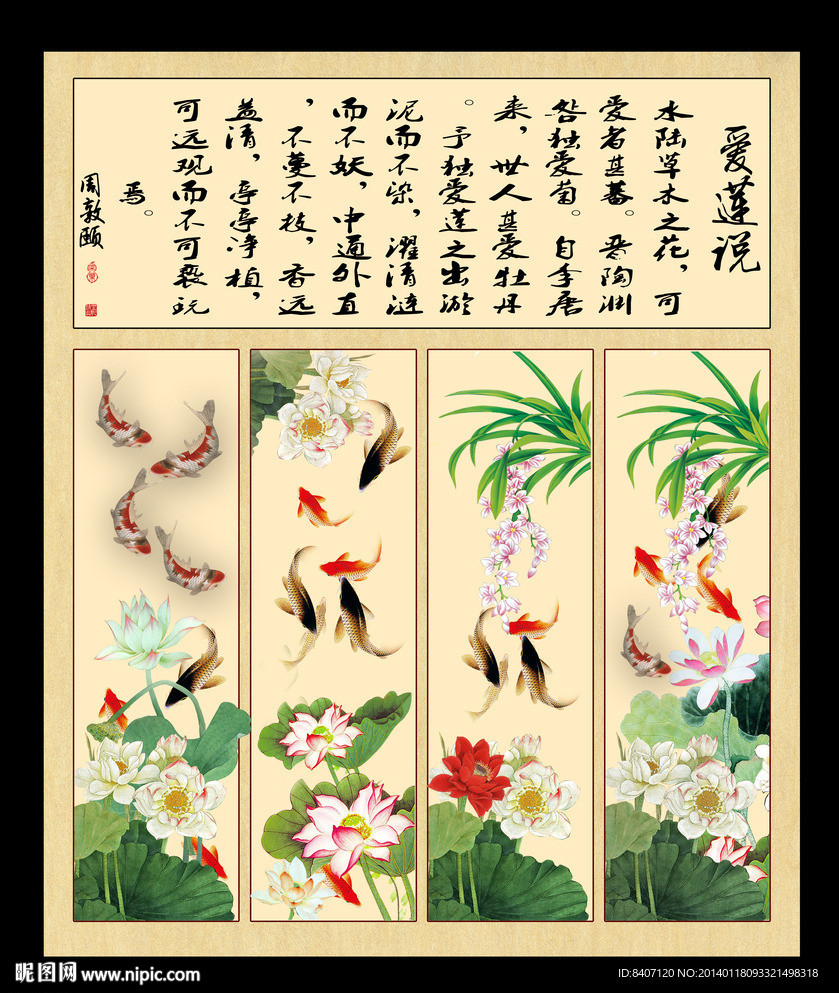 爱莲说
水陆草木之花，可
爱者甚蕃。晋陶渊
明独爱菊。自李唐
来，世人甚爱牡丹
。予独爱莲之出淤
泥而不染，濯清涟
而不妖，中通外直
，不蔓不枝，香远
益清，亭亭净植，
可远观而不可亵玩
焉。
周敦颐
昵图网 www.nipic.com
ID:8407120 NO:20140118093321498318